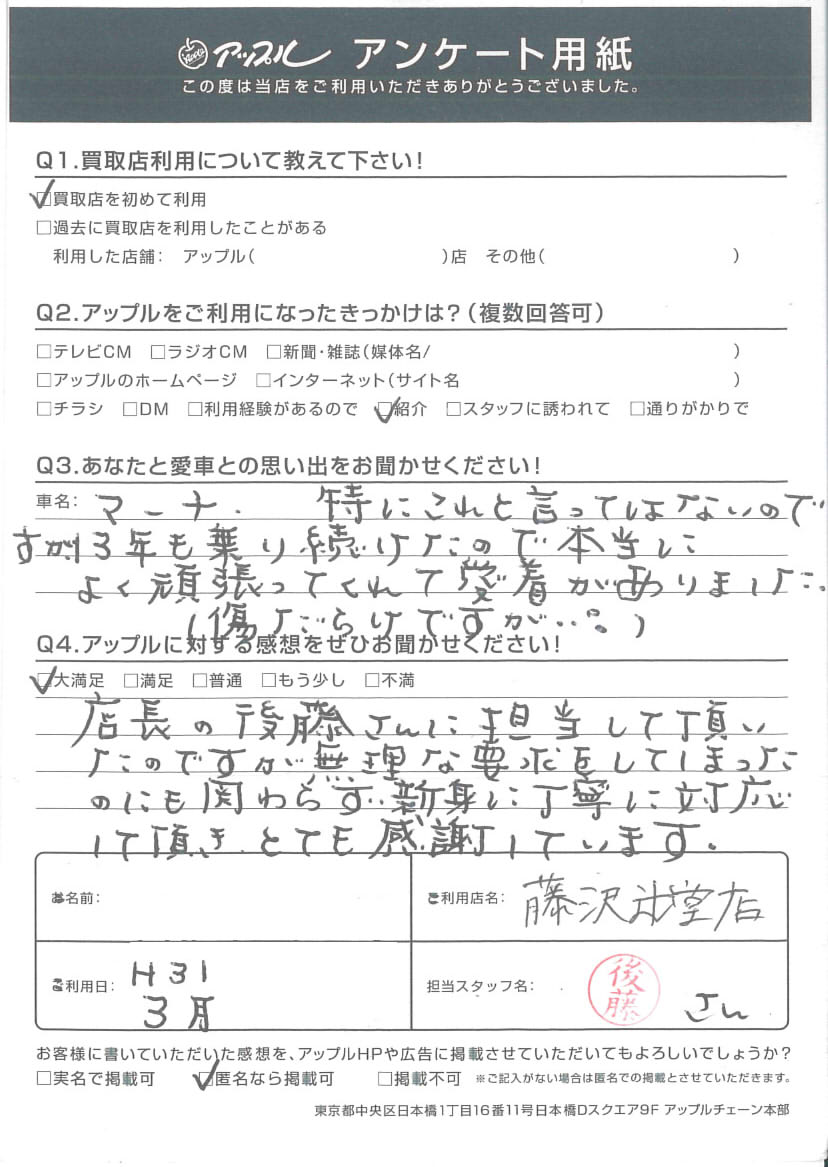 アップル アンケート用紙
この度は当店をご利用いただきありがとうございました。
Q1.買取店利用について教えて下さい！
☑買取店を初めて利用
□過去に買取店を利用したことがある
利用した店舗： アップル（ ）店 その他（ ）
Q2.アップルをご利用になったきっかけは？（複数回答可）
□テレビCM □ラジオCM □新聞・雑誌（媒体名/ ）
□アップルのホームページ □インターネット（サイト名 ）
□チラシ □DM □利用経験があるので ☑紹介 □スタッフに誘われて □通りがかりで
Q3.あなたと愛車との思い出をお聞かせください！
車名： マーチ. 特にこれと言ってはないので
すが13年も乗り続けたので本当に
よく頑張ってくれて愛着がありました。
（傷だらけですが…。）
Q4.アップルに対する感想をぜひお聞かせください！
☑大満足 □満足 □普通 □もう少し □不満
店長の後藤さんに担当して頂い
たのですが無理な要求をしてしまった
のにも関わらず、新身に丁寧に対応
して頂き、とても感謝しています。
お名前：
ご利用店名： 藤沢辻堂店
ご利用日： H31
3月
担当スタッフ名： 後藤 さん
お客様に書いていただいた感想を、アップルHPや広告に掲載させていただいてもよろしいでしょうか？
□実名で掲載可 ☑匿名なら掲載可 □掲載不可 ※ご記入がない場合は匿名での掲載とさせていただきます。
東京都中央区日本橋1丁目16番11号日本橋Dスクエア9F アップルチェーン本部